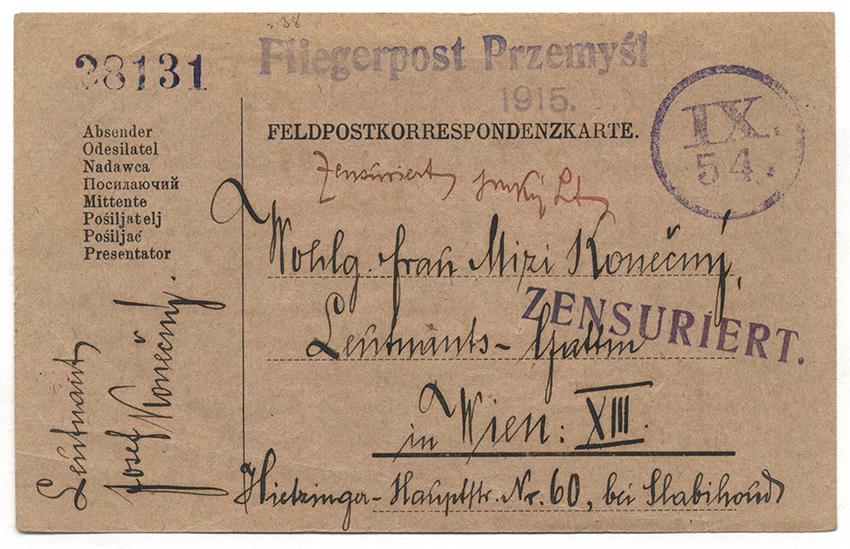 38131
Fliegerpost Przemyśl
1915.
IX.
54.
Absender
Odesilatel
Nadawca
Посилаючий
Mittente
Pošiljatelj
Pošiljać
Presentator
FELDPOSTKORRESPONDENZKARTE.
Zensuriert
Wohlg. Frau Mizi Konečný,
ZENSURIERT.
Leutnants-Gattin
in Wien: XIII.
Hietzinger-Hauptstr. Nr. 60, bei
Leutnant
Josef Konečný.